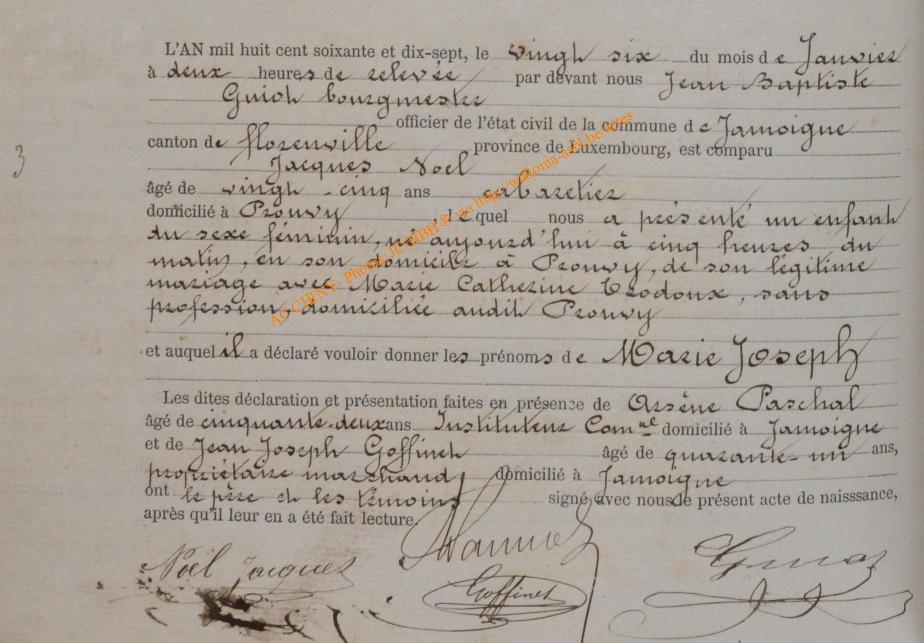 L'AN mil huit cent soixante et dix-sept, le vingt six du mois de Janvier
à deux heures de relevée par devant nous Jean Baptiste
Guiot bourgmestre
officier de l'état civil de la commune de Jamoigne
canton de florenville province de Luxembourg, est comparu
3
Jacques Noel
âgé de vingt-cinq ans cabaretier
domicilié à Prouvy, lequel nous a présenté un enfant
du sexe féminin, né aujourd'hui à cinq heures du
matin, en son domicile à Prouvy, de son légitime
mariage avec Marie Catherine Trodoux, sans
profession, domiciliée audit Prouvy
et auquel il a déclaré vouloir donner les prénoms de Marie Joseph
Les dites déclaration et présentation faites en présence de Arsène Paschal
âgé de cinquante-deux ans Instituteur Com.al domicilié à Jamoigne
et de Jean Joseph Goffinet âgé de quarante-un ans,
propriétaire marchand domicilié à Jamoigne
ont le père et les témoins signé avec nous le présent acte de naisssance,
après qu'il leur en a été fait lecture.
Noël Jacques
Goffinet